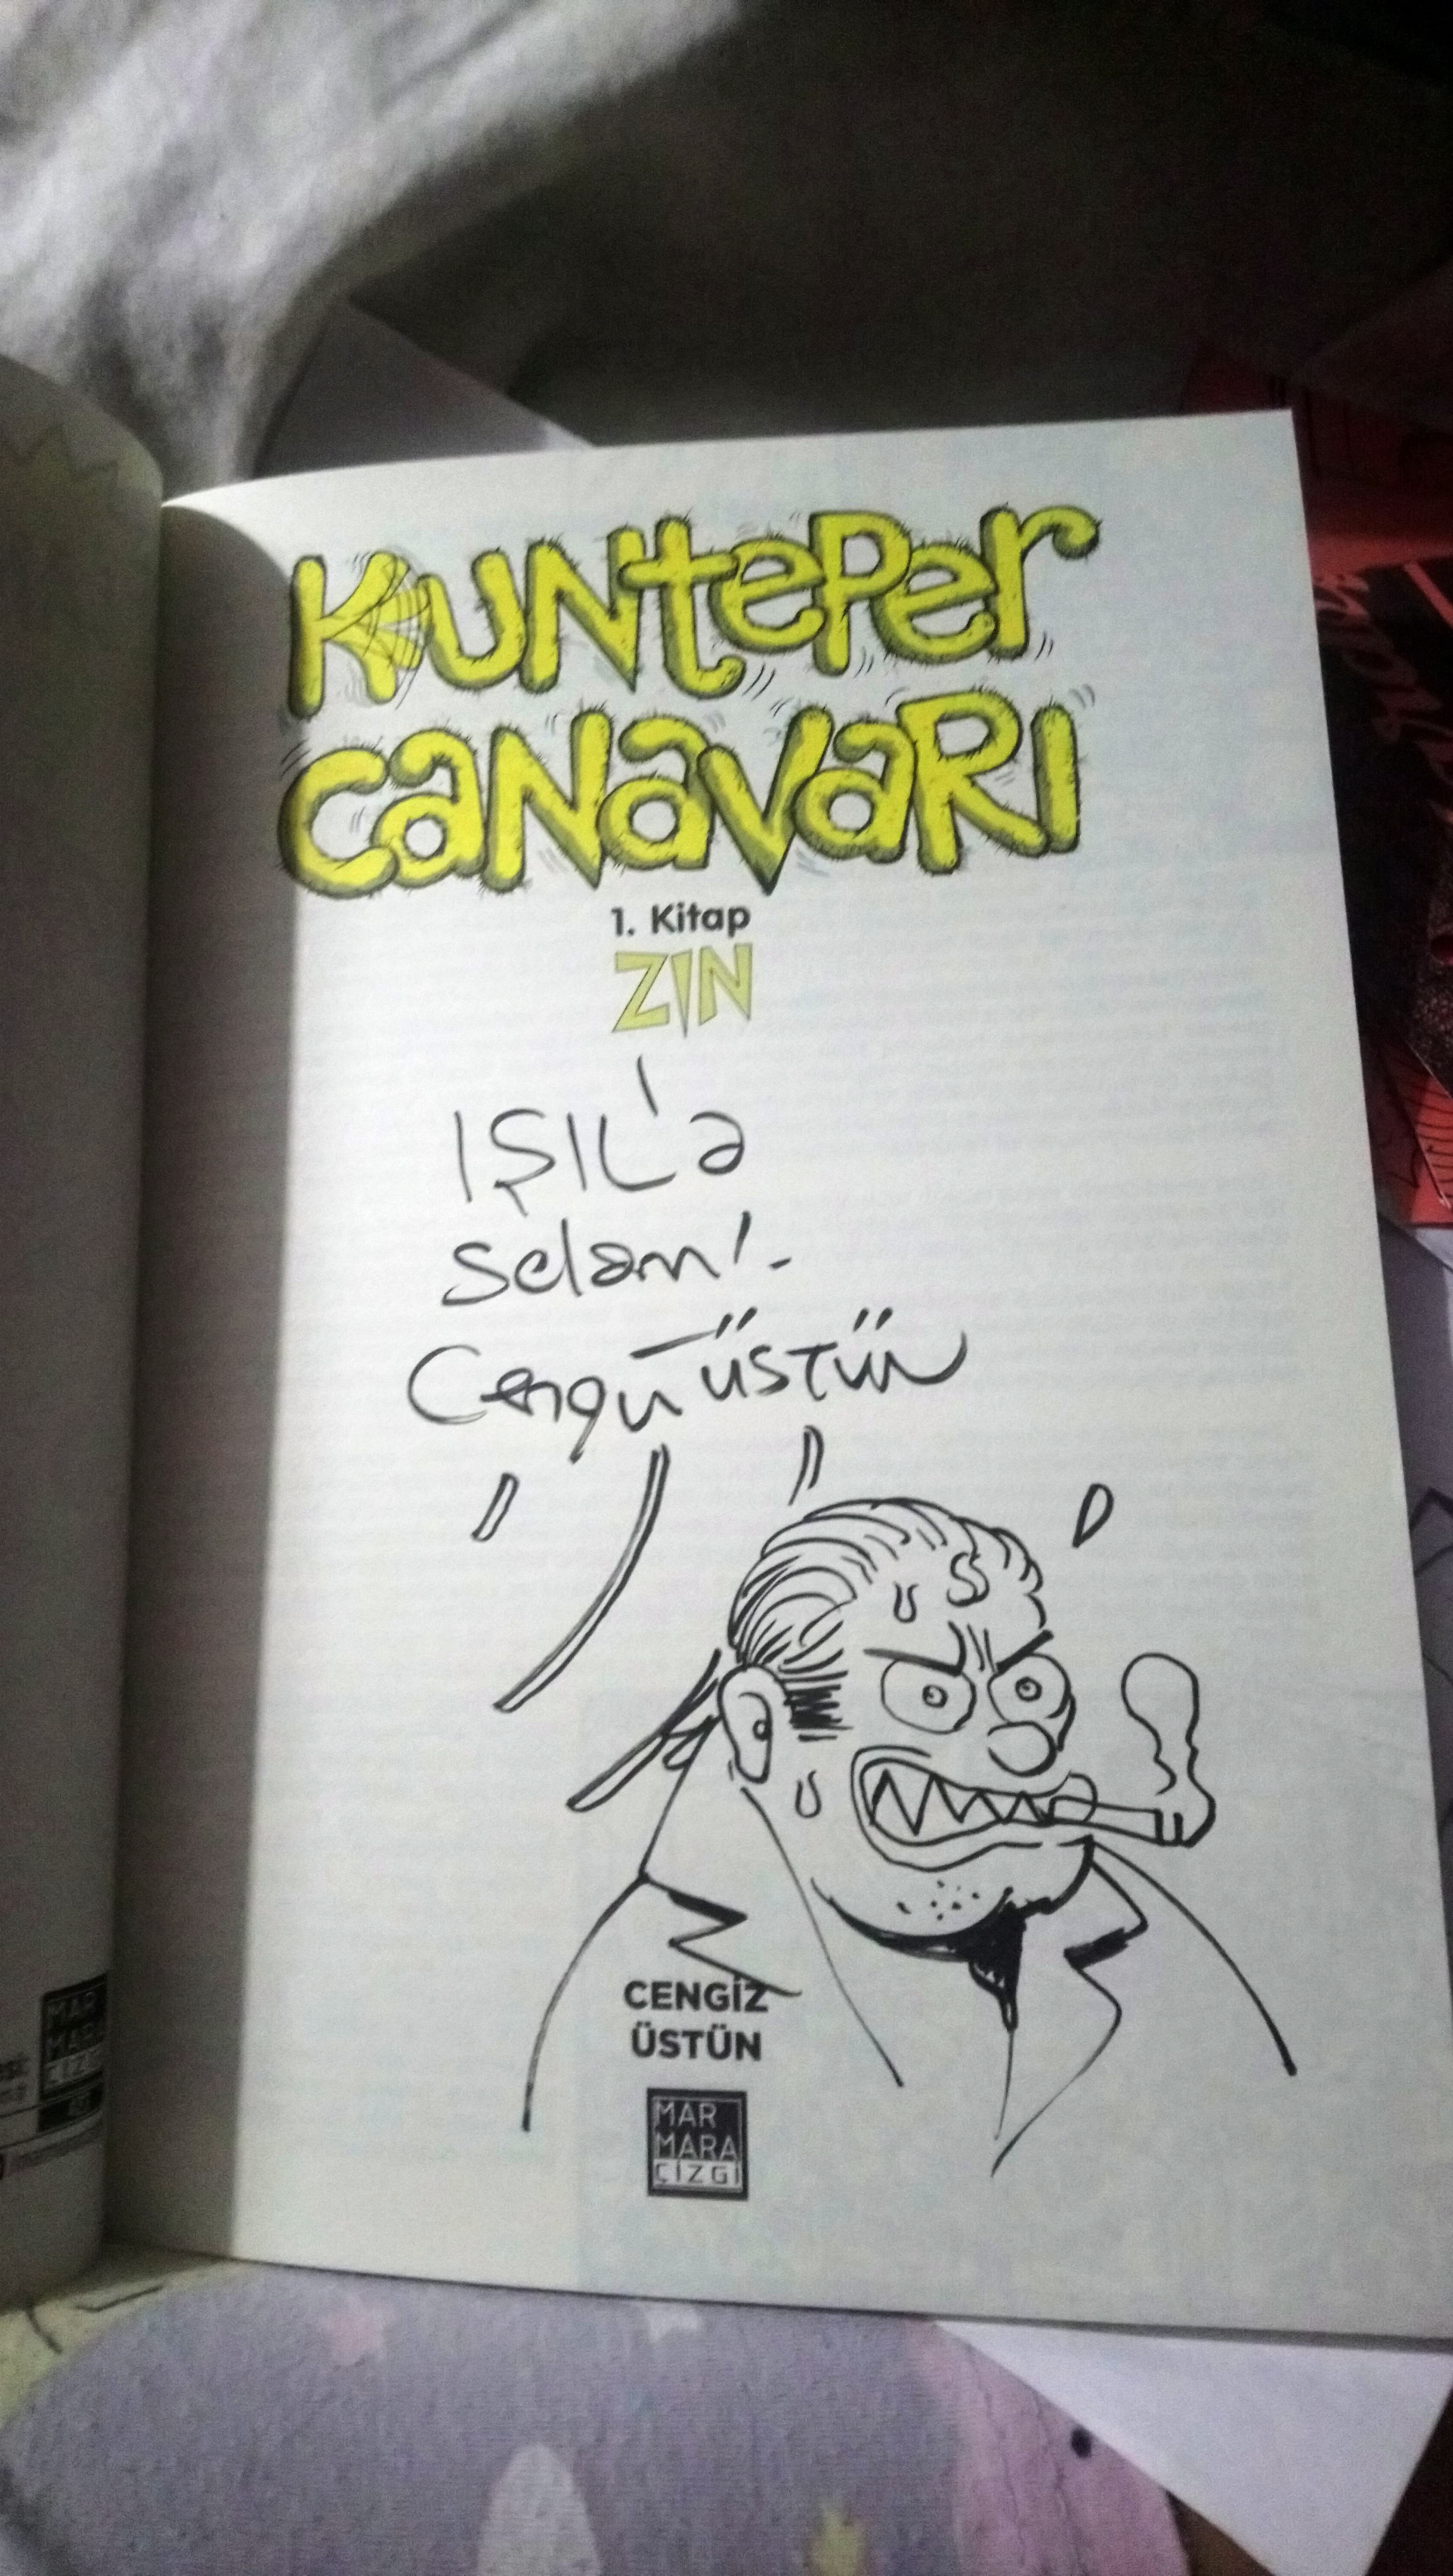 Kunteper
Canavarı
1. Kitap
ZIN
IŞIL'a
selam!-
Cengiz ÜSTÜN
CENGİZ
ÜSTÜN
MAR
MARA
ÇİZGİ
MAR
MARA
ÇİZGİ